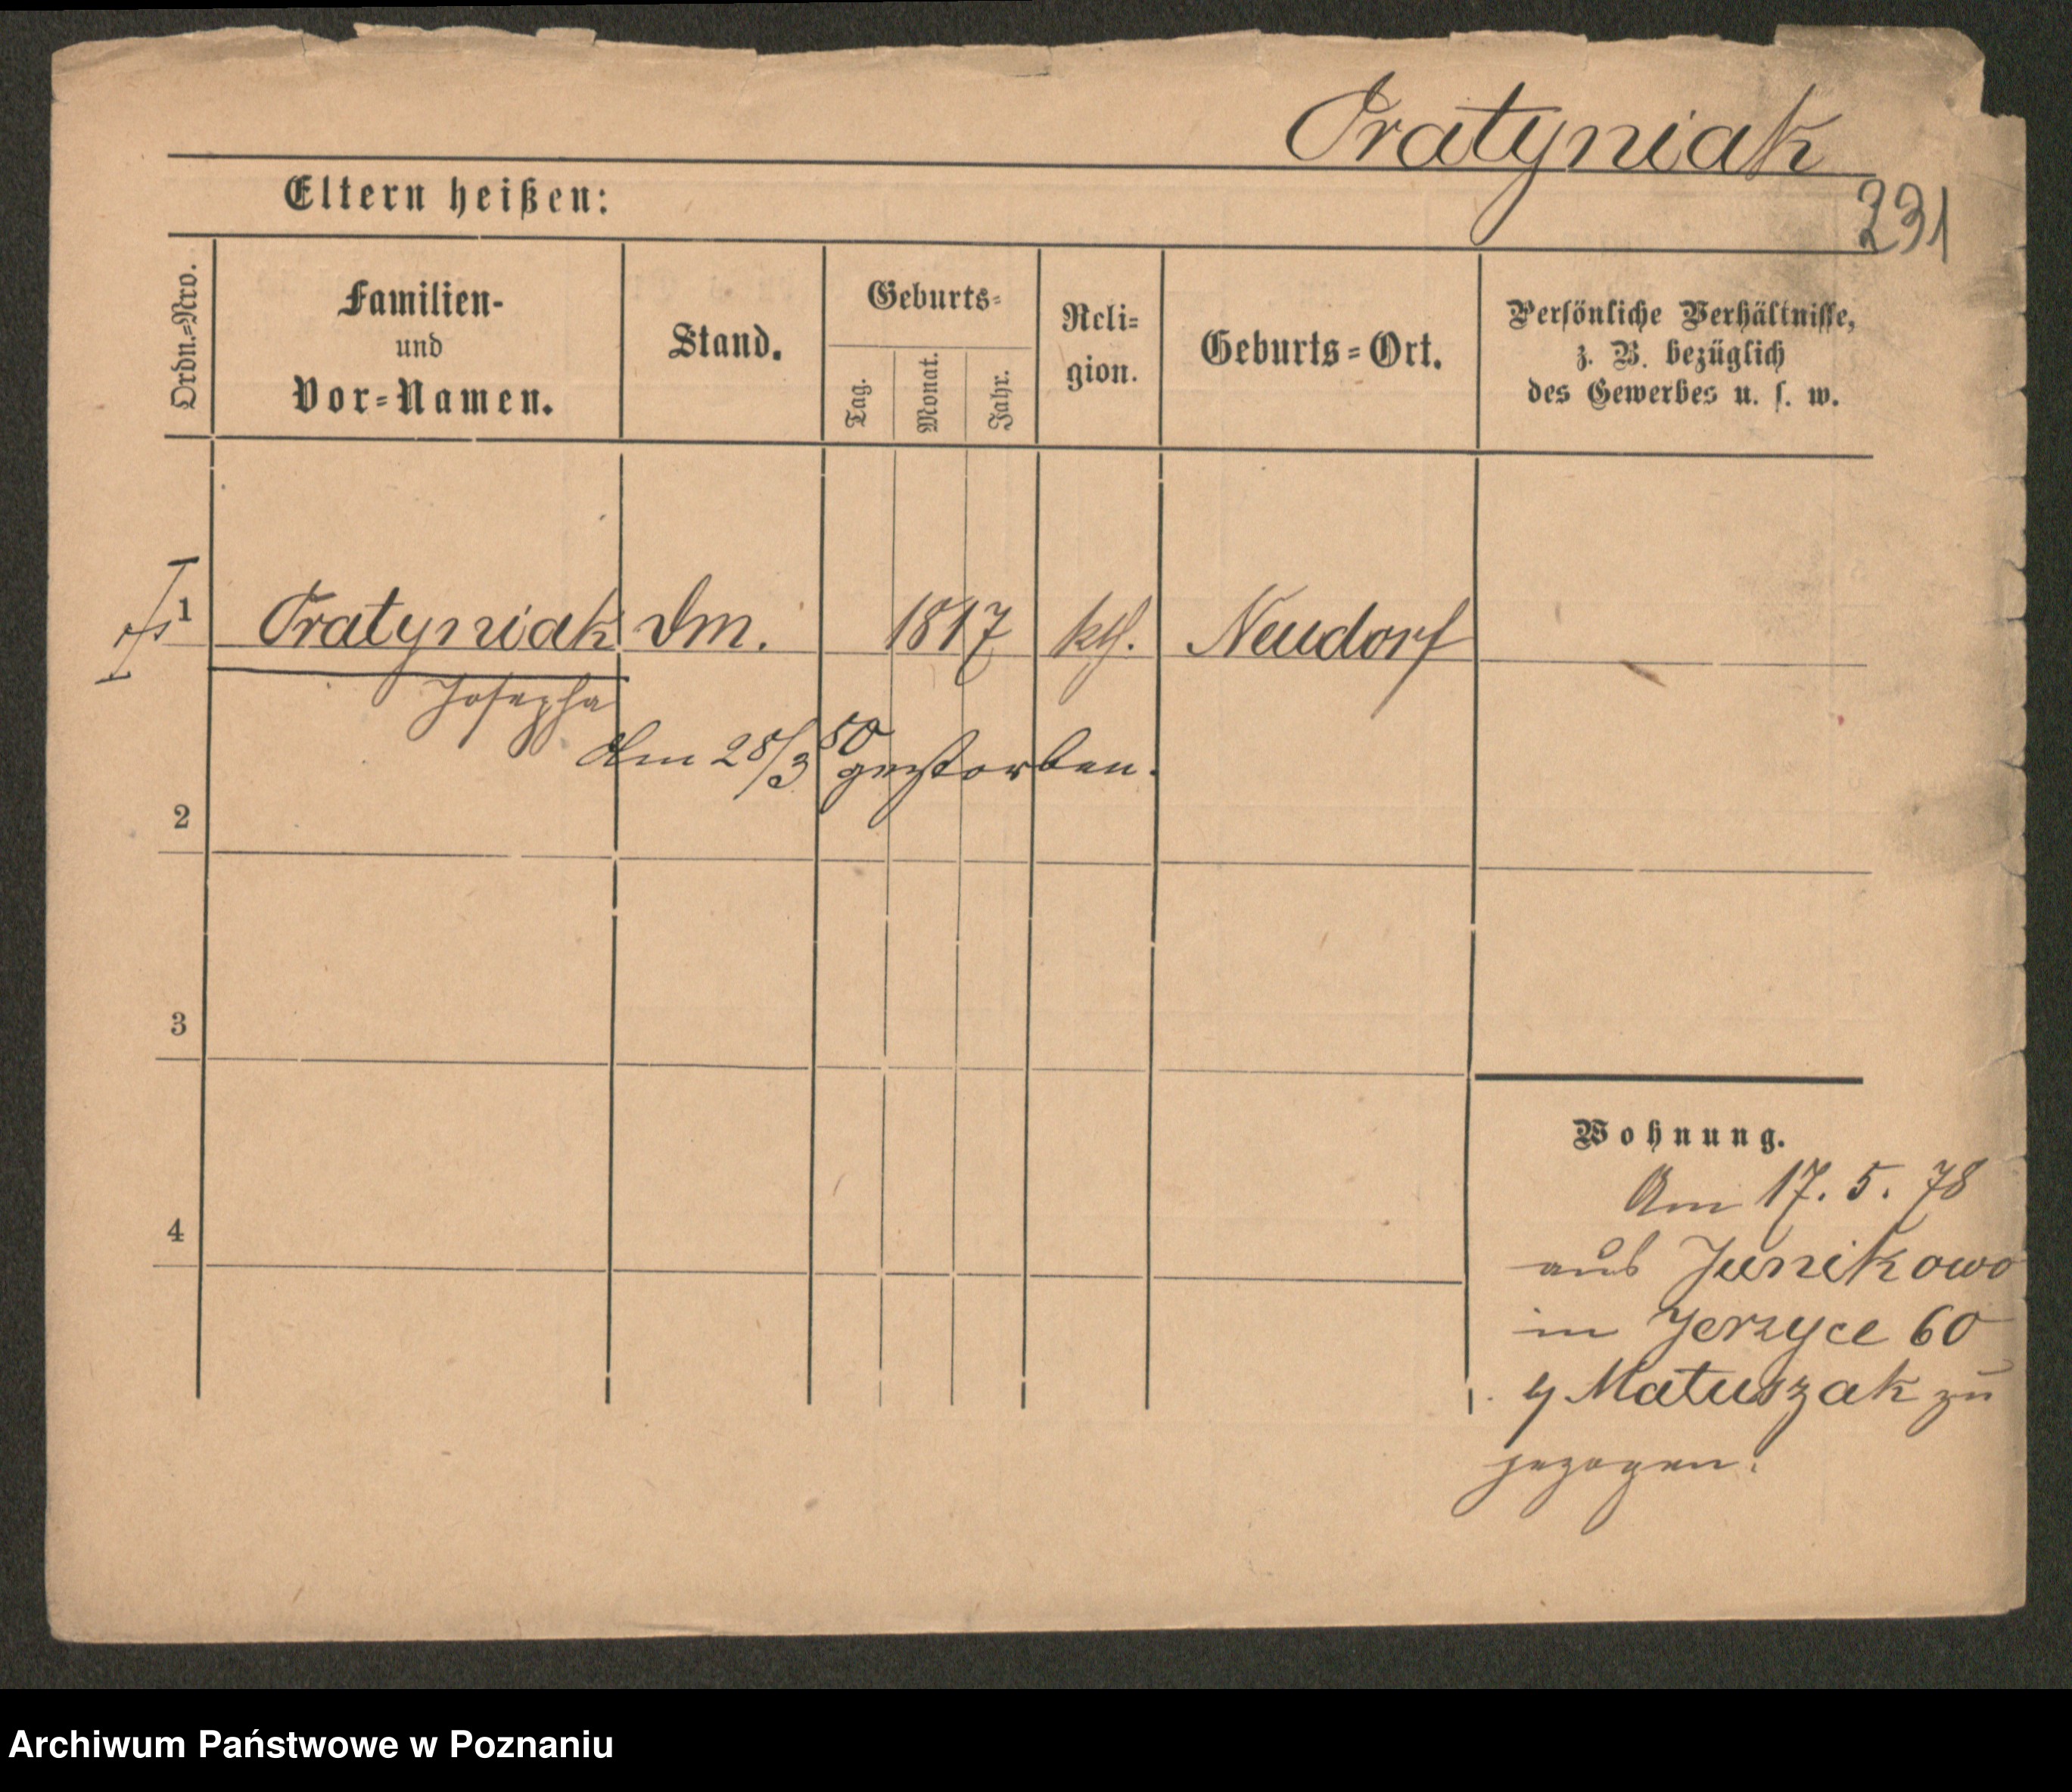 Pratyniak
231
Eltern heißen:
Ordn.=Nro.
Familien-
und
Vor=Namen.
Stand.
Geburts=
Tag.
Monat.
Jahr.
Reli=
gion.
Geburts=Ort.
Persönliche Verhältnisse,
z. B. bezüglich
des Gewerbes u. s. w.
1 Pratyniak 1817 kth. Neudorf
Josepha
Am 28/3 80 gestorben.
2
3
4
Wohnung.
Am 17. 5. 78
aus Junikowo
in Jerzyce 60
Matuszak zu
gezogen.
Archiwum Państwowe w Poznaniu